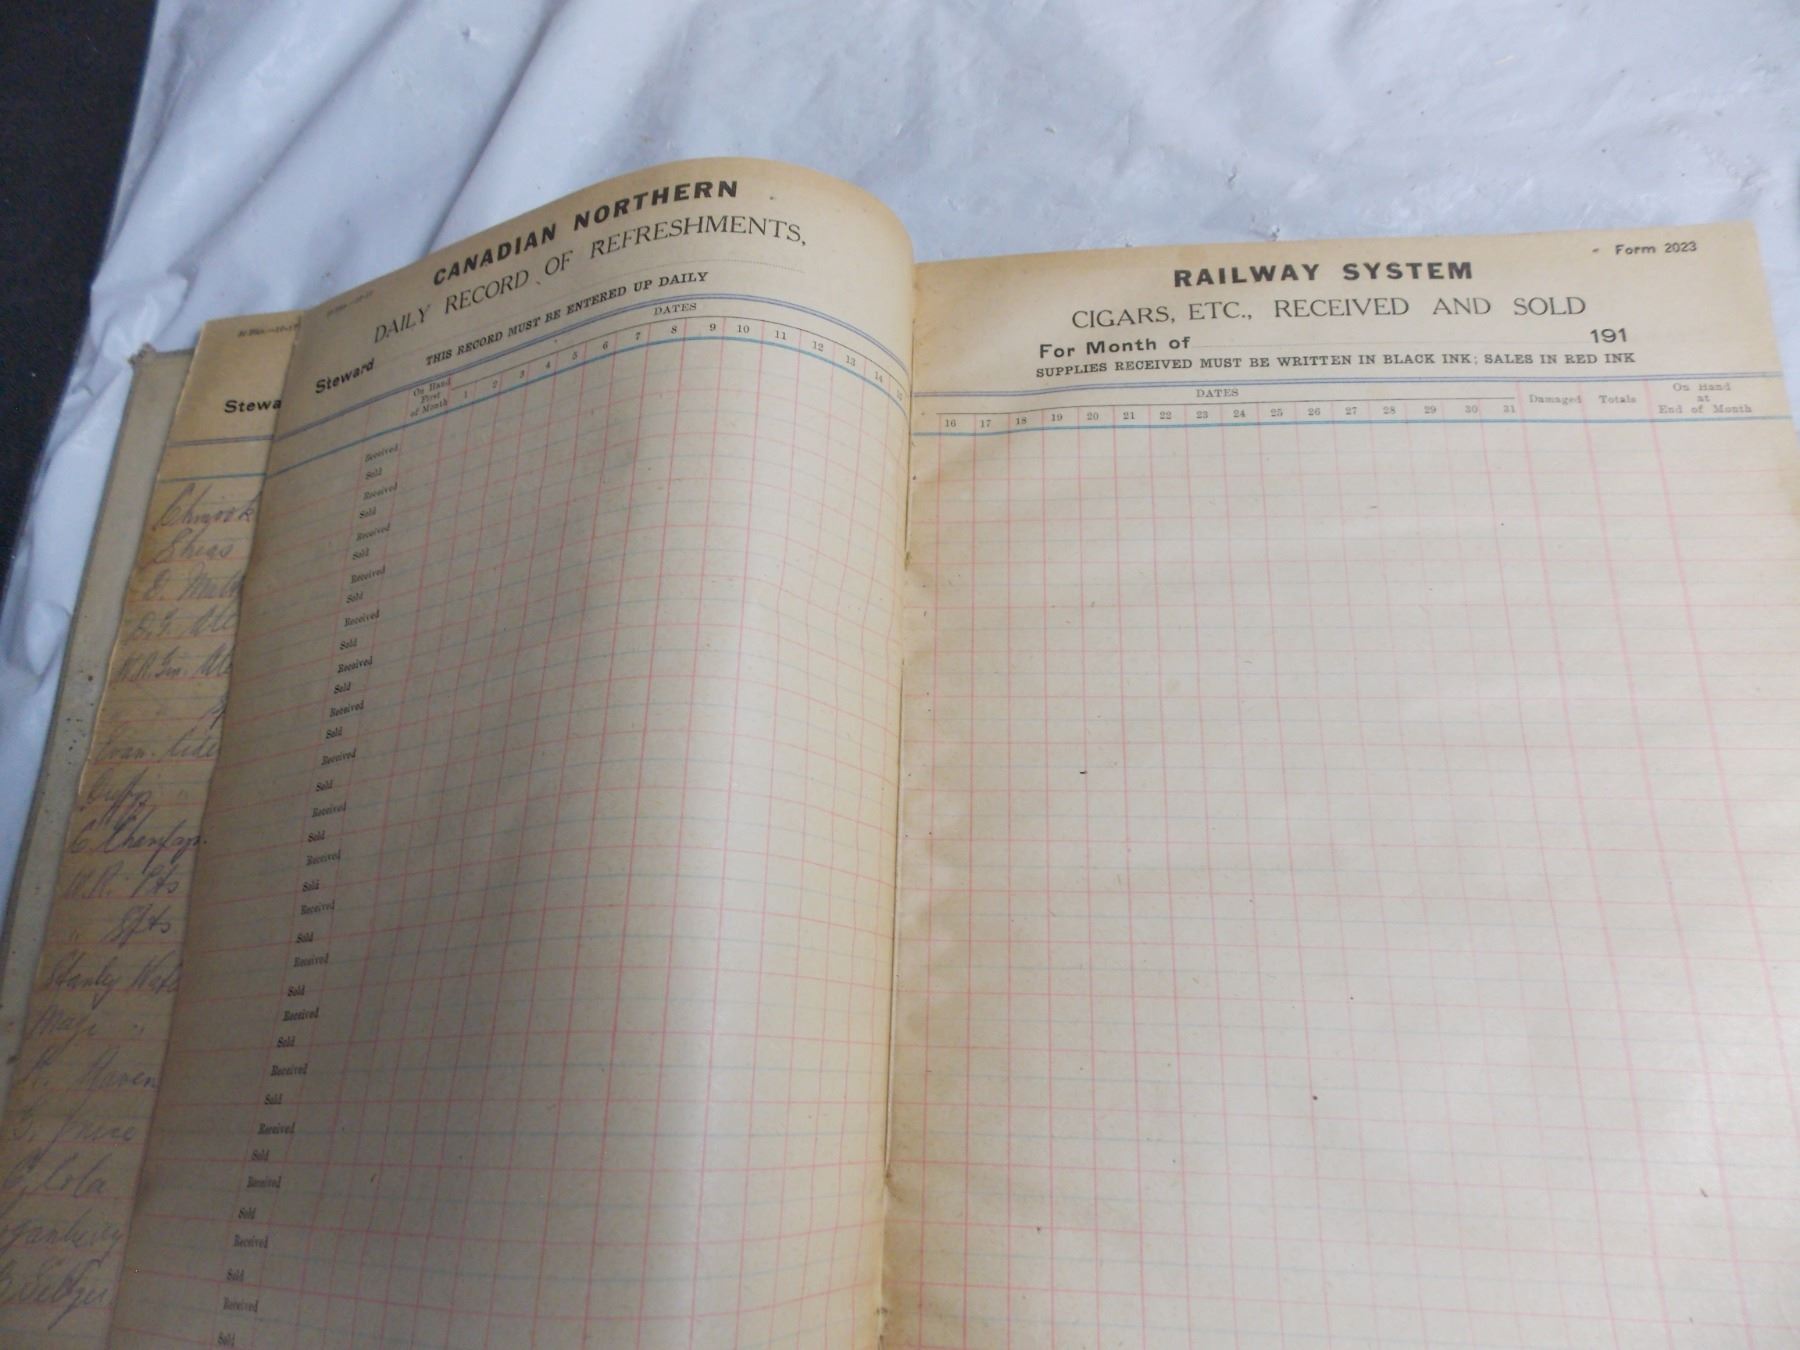 CANADIAN NORTHERN
DAILY RECORD OF REFRESHMENTS,
Steward
THIS RECORD MUST BE ENTERED UP DAILY
DATES
On Hand
First
of Month
1 2 3 4 5 6 7 8 9 10 11 12 13 14 15
Received
Sold
Received
Sold
Received
Sold
Received
Sold
Received
Sold
Received
Sold
Received
Sold
Received
Sold
Received
Sold
Received
Sold
Received
Sold
Received
Sold
Received
Sold
Received
Sold
Received
Sold
Received
Sold
Received
Sold
Received
Sold
Form 2023
RAILWAY SYSTEM
CIGARS, ETC., RECEIVED AND SOLD
For Month of 191
SUPPLIES RECEIVED MUST BE WRITTEN IN BLACK INK; SALES IN RED INK
DATES
16 17 18 19 20 21 22 23 24 25 26 27 28 29 30 31
Damaged
Totals
On Hand
at
End of Month
Stewa
Chinook
W.R. Pts
" Spts
Stanly Wate
C. Cola